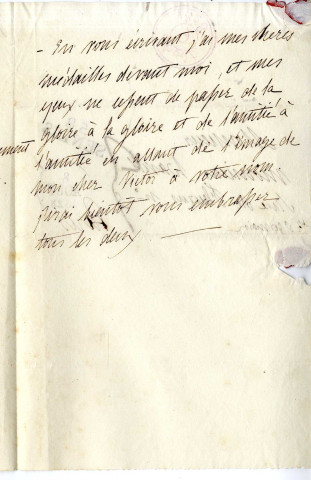 - En vous écrivant, j'ai mes chères
médailles devant moi, et mes
yeux ne cessent de passer de la
gloire à la gloire et de l'amitié à
l'amitié en allant de l'image de
mon cher Victor à votre nom.
J'irai bientôt vous embrasser
tous les deux